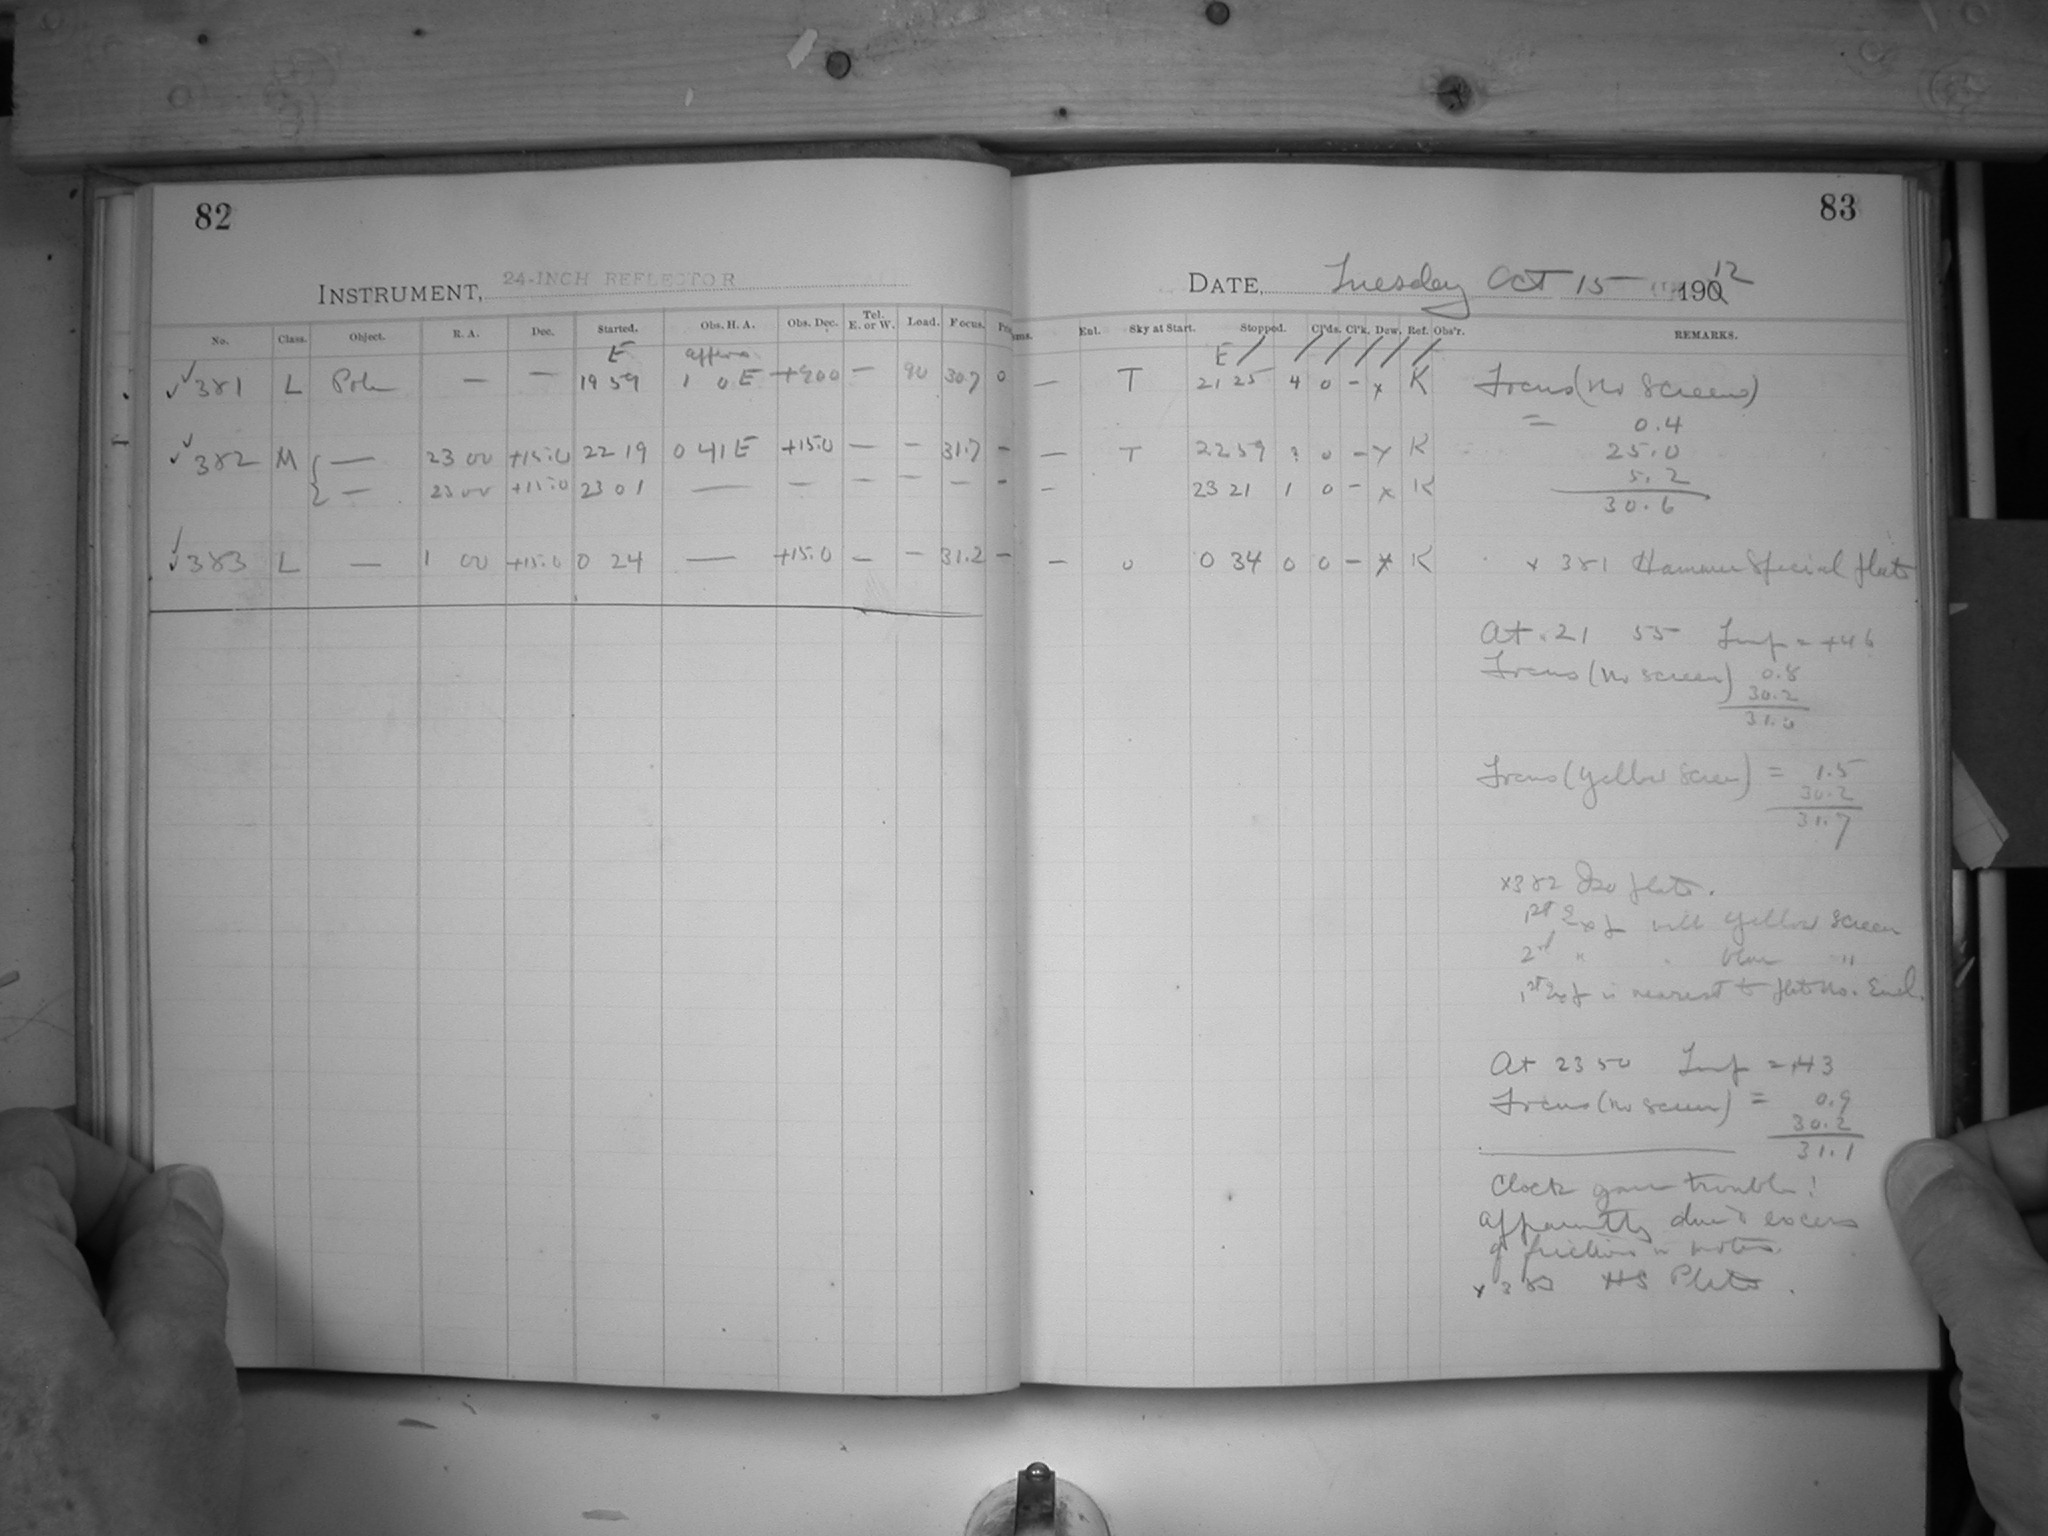 82
INSTRUMENT, 24-INCH REFLECTOR
No. Class. Object. R. A. Dec. Started. Obs. H. A. Obs. Dec. Tel. E. or W. Load. Focus.
E approx
381 L Pole — — 19 59 1 0 E +90.0 — 90 30.7 0
382 M { — 23 00 +15.0 22 19 0 41 E +15.0 — — 31.7 –
— 23 00 +15.0 23 01 — — — — — –
383 L — 1 00 +15.0 0 24 — +15.0 — — 31.2 –
83
DATE, Tuesday Oct 15 190 12
Enl. Sky at Start. Stopped. Cl'ds. Cl'k. Dew. Ref. Obs'r. REMARKS.
E / / / / / /
— T 21 25 4 0 – x K Focus (no screen)
= 0.4
— T 22 59 0 – x K 25.0
5.2
— 23 21 1 0 – x K 30.6
— 0 0 34 0 0 – x K x 381 Hammer Special plate
At 21 55 Temp = +46
Focus (no screen) 0.8
30.2
31.0
Focus (yellow screen) = 1.5
30.2
31.7
x382 Iso plate.
1st Exp with yellow screen
2nd " " blue "
1st Exp is nearest to plate no. End.
At 23 50 Temp = +43
Focus (no screen) = 0.9
30.2
31.1
Clock gave trouble!
apparently due to excess
of friction in motor.
x 383 HS Plate.